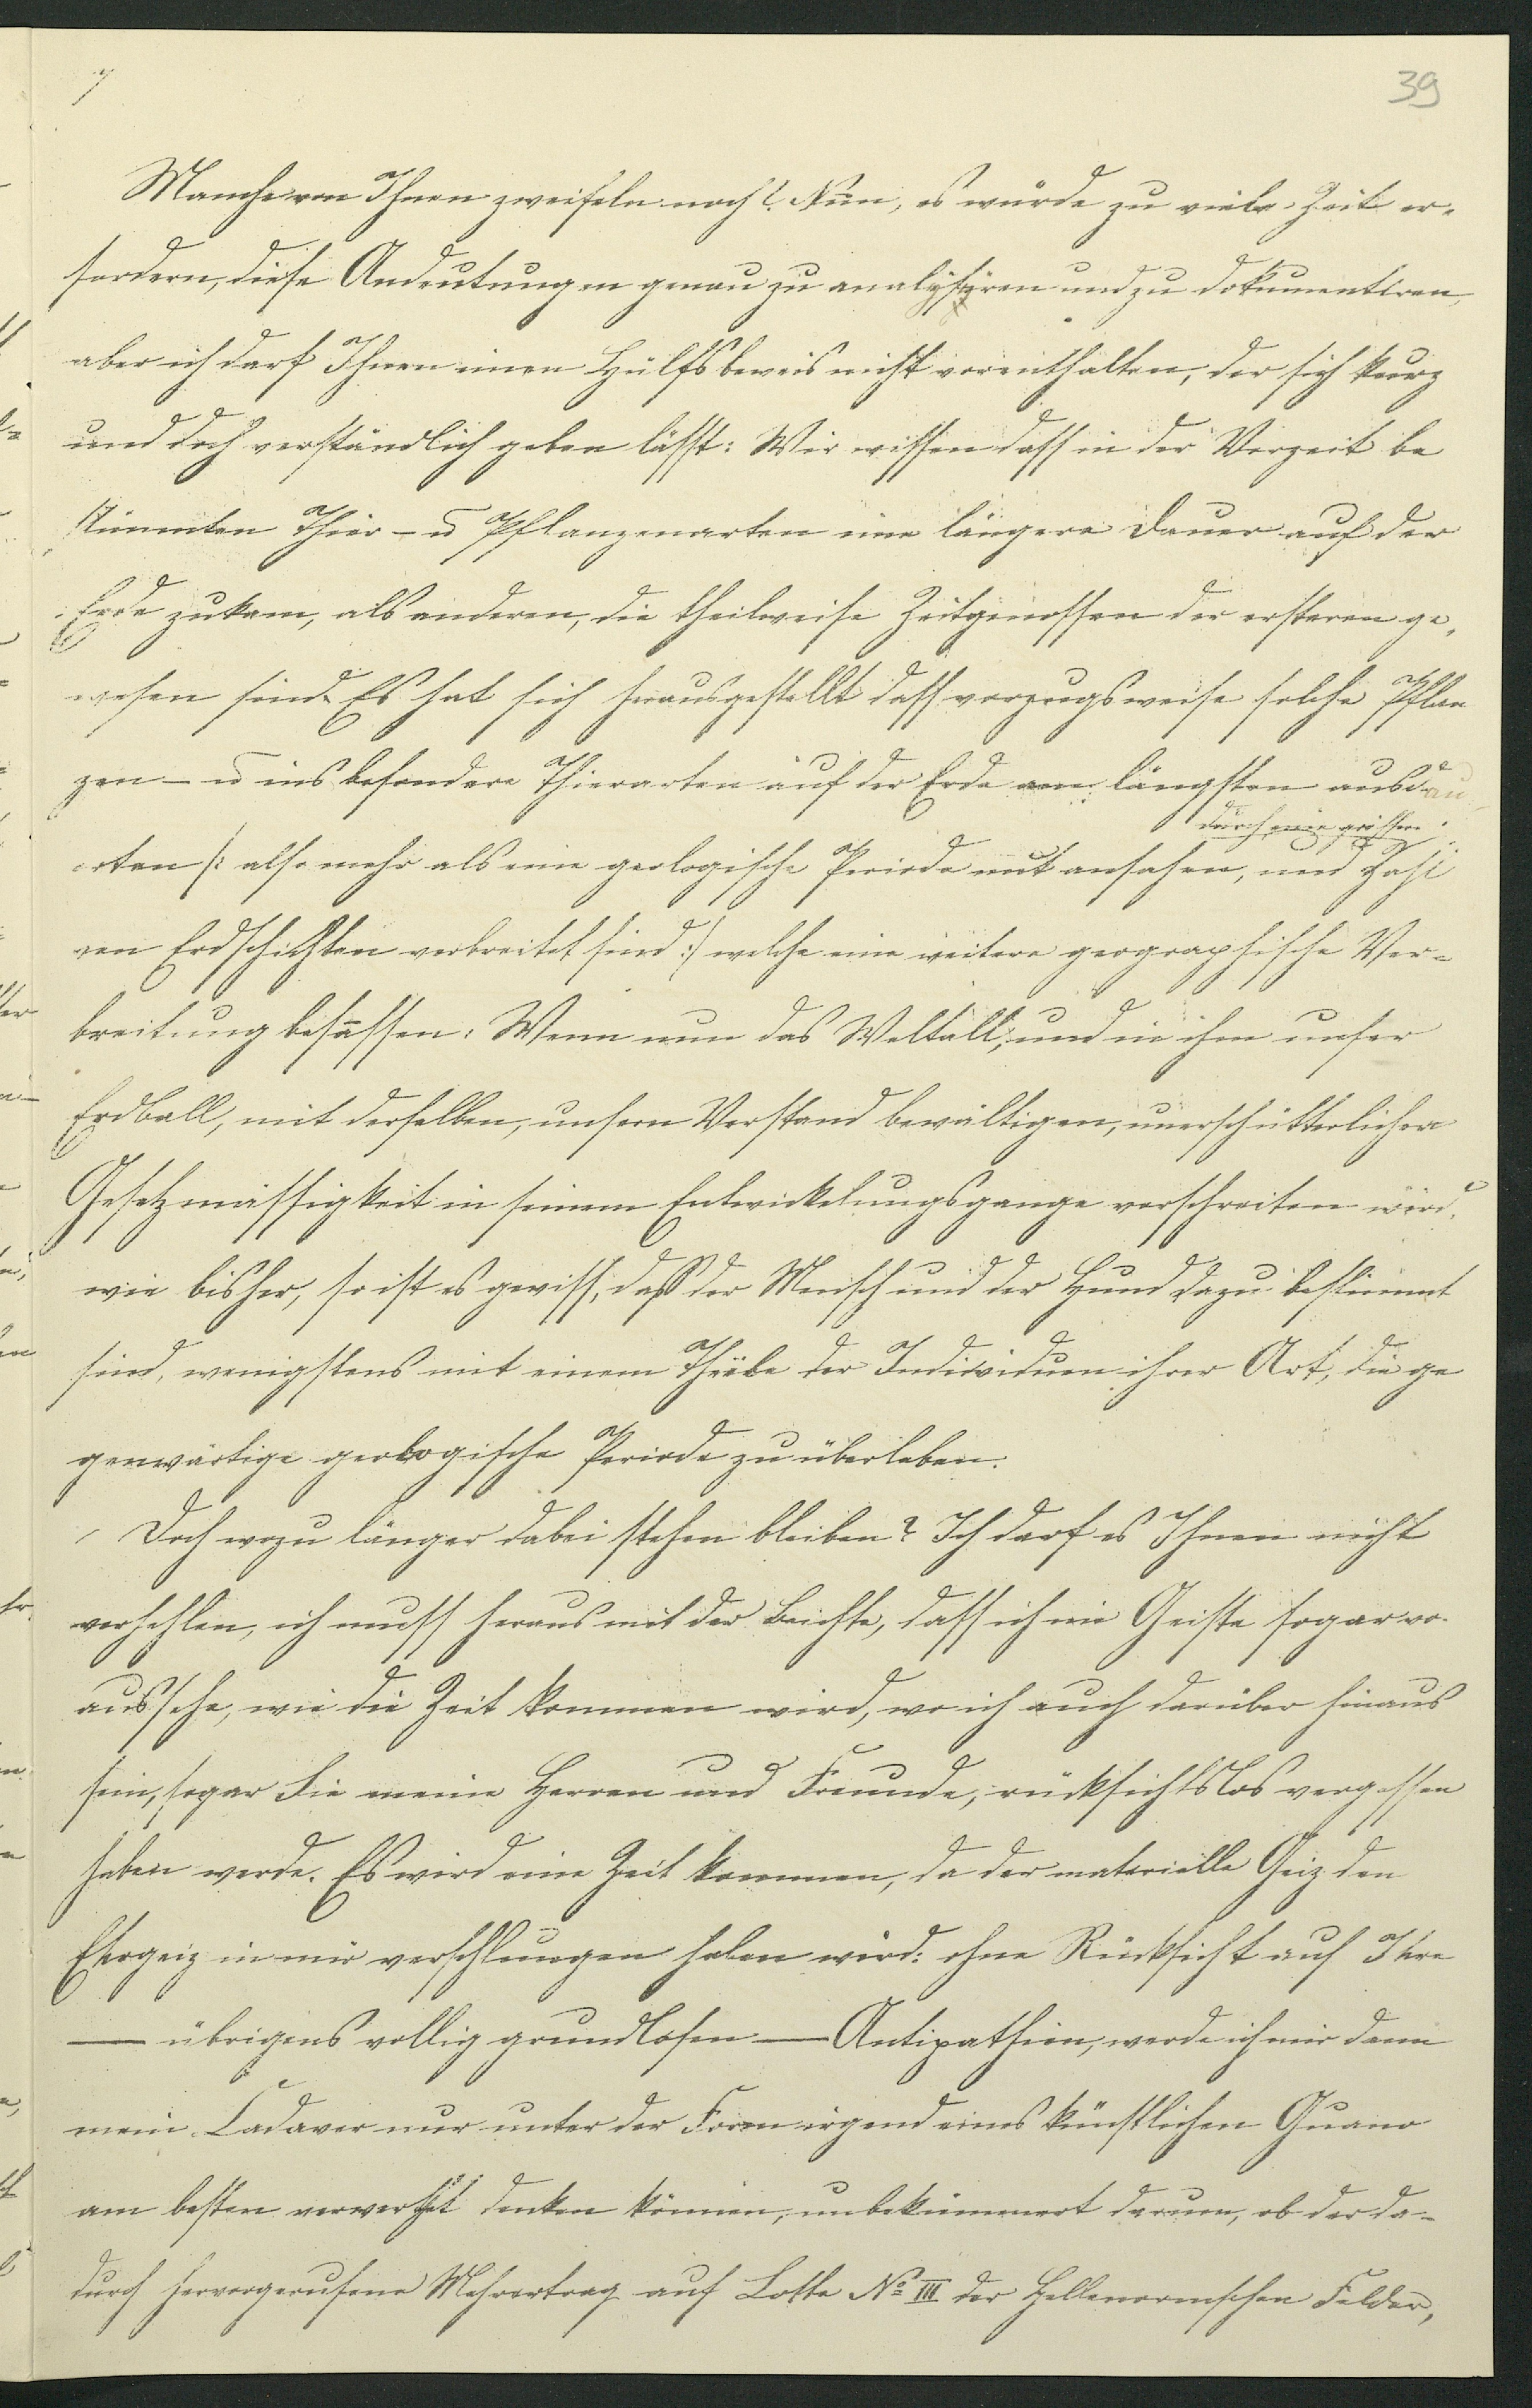 7
39
Manche von Ihnen zweifeln noch? Nun, es würde zu viele Zeit er-
fordern, diese Andeutungen genau zu analysiren und zu dokumentiren,
aber ich darf Ihnen einen Hülfsbeweis nicht vorenthalten, der sich kurz
und doch verständlich geben lässt: Wir wissen dass in der Vorzeit be
stimmten Thier- u Pflanzenarten eine längere Dauer auf der
Erde zukam, als anderen, die theilweise Zeitgenossen der ersteren ge-
wesen sind. Es hat sich herausgestellt dass vorzugsweise solche Pflan
zen- u ins besondere Thierarten auf der Erde am längsten ausdau
durch eine grössere
erten /: also mehr als eine geologische Periode mit ansahen, und Zahl
von Erdschichten verbreitet sind :/ welche eine weitere geographische Ver-
breitung besassen: Wenn nun das Weltall, und in ihm unser
Erdball, mit derselben, unsern Verstand bewältigen, unerschütterlichen
Gesetzmässigkeit in seinem Entwickelungsgange vorschreiten wird,
wie bisher, so ist es gewiss, daß der Mensch und der Hund dazu bestimmt
sind, wenigstens mit einem Theile der Individuen ihrer Art, die ge
genwärtige geologische Periode zu überleben.
Doch wozu länger dabei stehen bleiben? Ich darf es Ihnen nicht
verhehlen, ich muss heraus mit der Beichte, dass ich im Geiste sogar vo
aussehe, wie die Zeit kommen wird, wo ich auch darüber hinaus
sein, sogar Sie meine Herren und Freunde, rücksichtslos vergessen
haben werde. Es wird eine Zeit kommen, da der materielle Geiz den
Ehrgeiz in mir verschlungen haben wird: ohne Rücksicht auf Ihre
— übrigens vollig grundlosen — Antipathien, werde ich mir dann
mein Cadaver nur unter der Form irgend eines künstlichen Guano
am besten verwerthet denken können, unbekümmert darum, ob der da-
durch hervorgerufene Mehrertrag auf Lotte № III der Hellenormschen Felder,